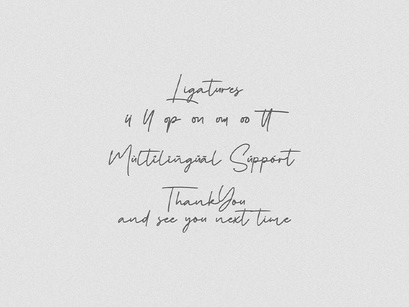 Ligatures
ii ll op on om oo tt
Múltílíngúál Súppórt
ThankYou
and see you next time